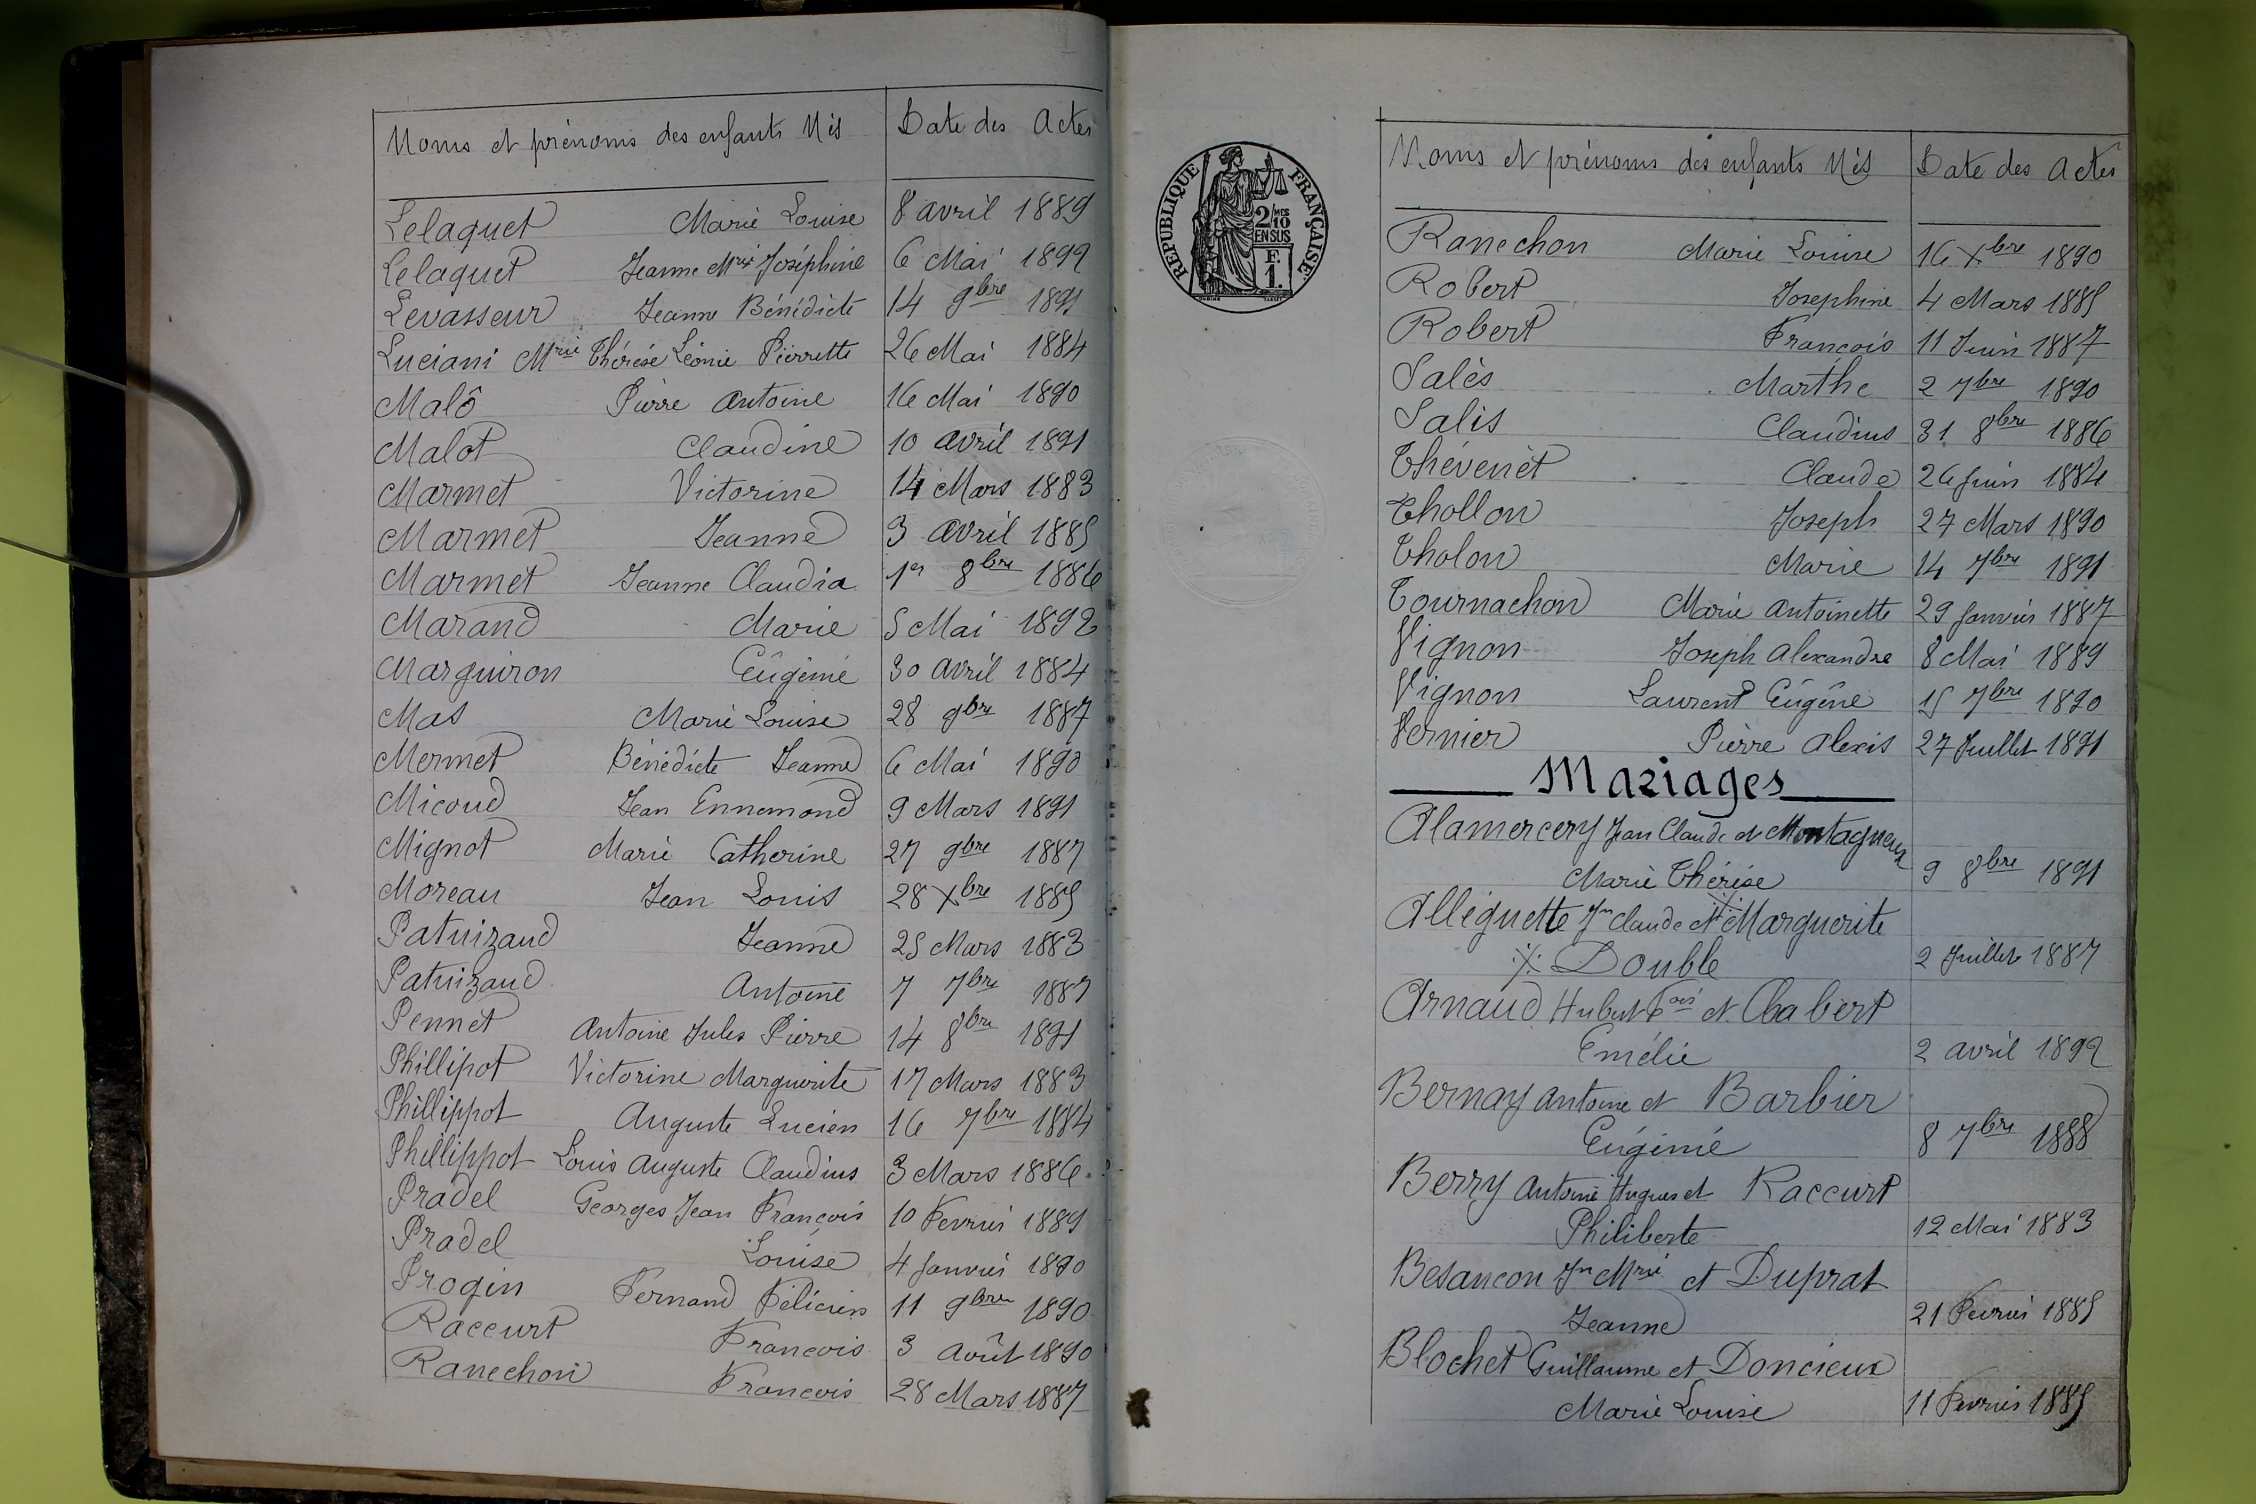 Noms et prénoms des enfants Nés Date des Actes
Lelaquet Marie Louise 8 avril 1889
Lelaquet Jeanne Mrie Joséphine 6 Mai 1892
Levasseur Jeanne Bénédicte 14 9bre 1891
Luciani Mrie Thérèse Léonie Pierrette 26 Mai 1884
Malô Pierre Antoine 16 Mai 1890
Malot Claudine 10 avril 1891
Marmet Victorine 14 Mars 1883
Marmet Jeanne 3 avril 1885
Marmet Jeanne Claudia 1er 8bre 1886
Marand Marie 5 Mai 1892
Marguiron Eugénie 30 avril 1884
Mas Marie Louise 28 9bre 1887
Mermet Bénédicte Jeanne 6 Mai 1890
Micoud Jean Ennemond 9 Mars 1891
Mignot Marie Catherine 27 9bre 1887
Moreau Jean Louis 28 Xbre 1885
Patuizaud Jeanne 25 Mars 1883
Patuizaud Antoine 7 7bre 1887
Pennet Antoine Jules Pierre 14 8bre 1891
Phillipot Victorine Marguerite 17 Mars 1883
Phillippot Auguste Lucien 16 7bre 1884
Phillippot Louis Auguste Claudius 3 Mars 1886
Pradel Georges Jean François 10 Fevrier 1889
Pradel Louise 4 Janvier 1890
Progin Fernand Félicien 11 9bre 1890
Raccurt Francois 3 Août 1890
Ranechon Francois 28 Mars 1887
RÉPUBLIQUE FRANÇAISE
2/10 MES
EN SUS
F.
1.
Noms et prénoms des enfants Nés Date des Actes
Ranechon Marie Louise 16 Xbre 1890
Robert Josephine 4 Mars 1885
Robert François 11 Juin 1887
Salès Marthe 2 7bre 1890
Salis Claudius 31 8bre 1886
Thévenet Claude 26 Juin 1884
Thollon Joseph 27 Mars 1890
Tholon Marie 14 7bre 1891
Tournachon Marie Antoinette 29 Janvier 1887
Vignon Joseph Alexandre 8 Mai 1889
Vignon Laurent Eugêne 15 7bre 1890
Vernier Pierre Alexis 27 Juillet 1891
Mariages
Alamercery Jean Claude et Montagneux
Marie Thérèse 9 8bre 1891
Alléguette Jn Claude et Marguerite
Double 2 Juillet 1887
Arnaud Hubert Fois et Chabert
Emélie 2 avril 1892
Bernay Antoine et Barbier
Eugénie 8 7bre 1888
Berry Antoine Hugues et Raccurt
Philiberte 12 Mai 1883
Besancon Jn Mrie et Duprat
Jeanne 21 Fevrier 1885
Blochet Guillaume et Doncieux
Marie Louise 11 Fevrier 1885